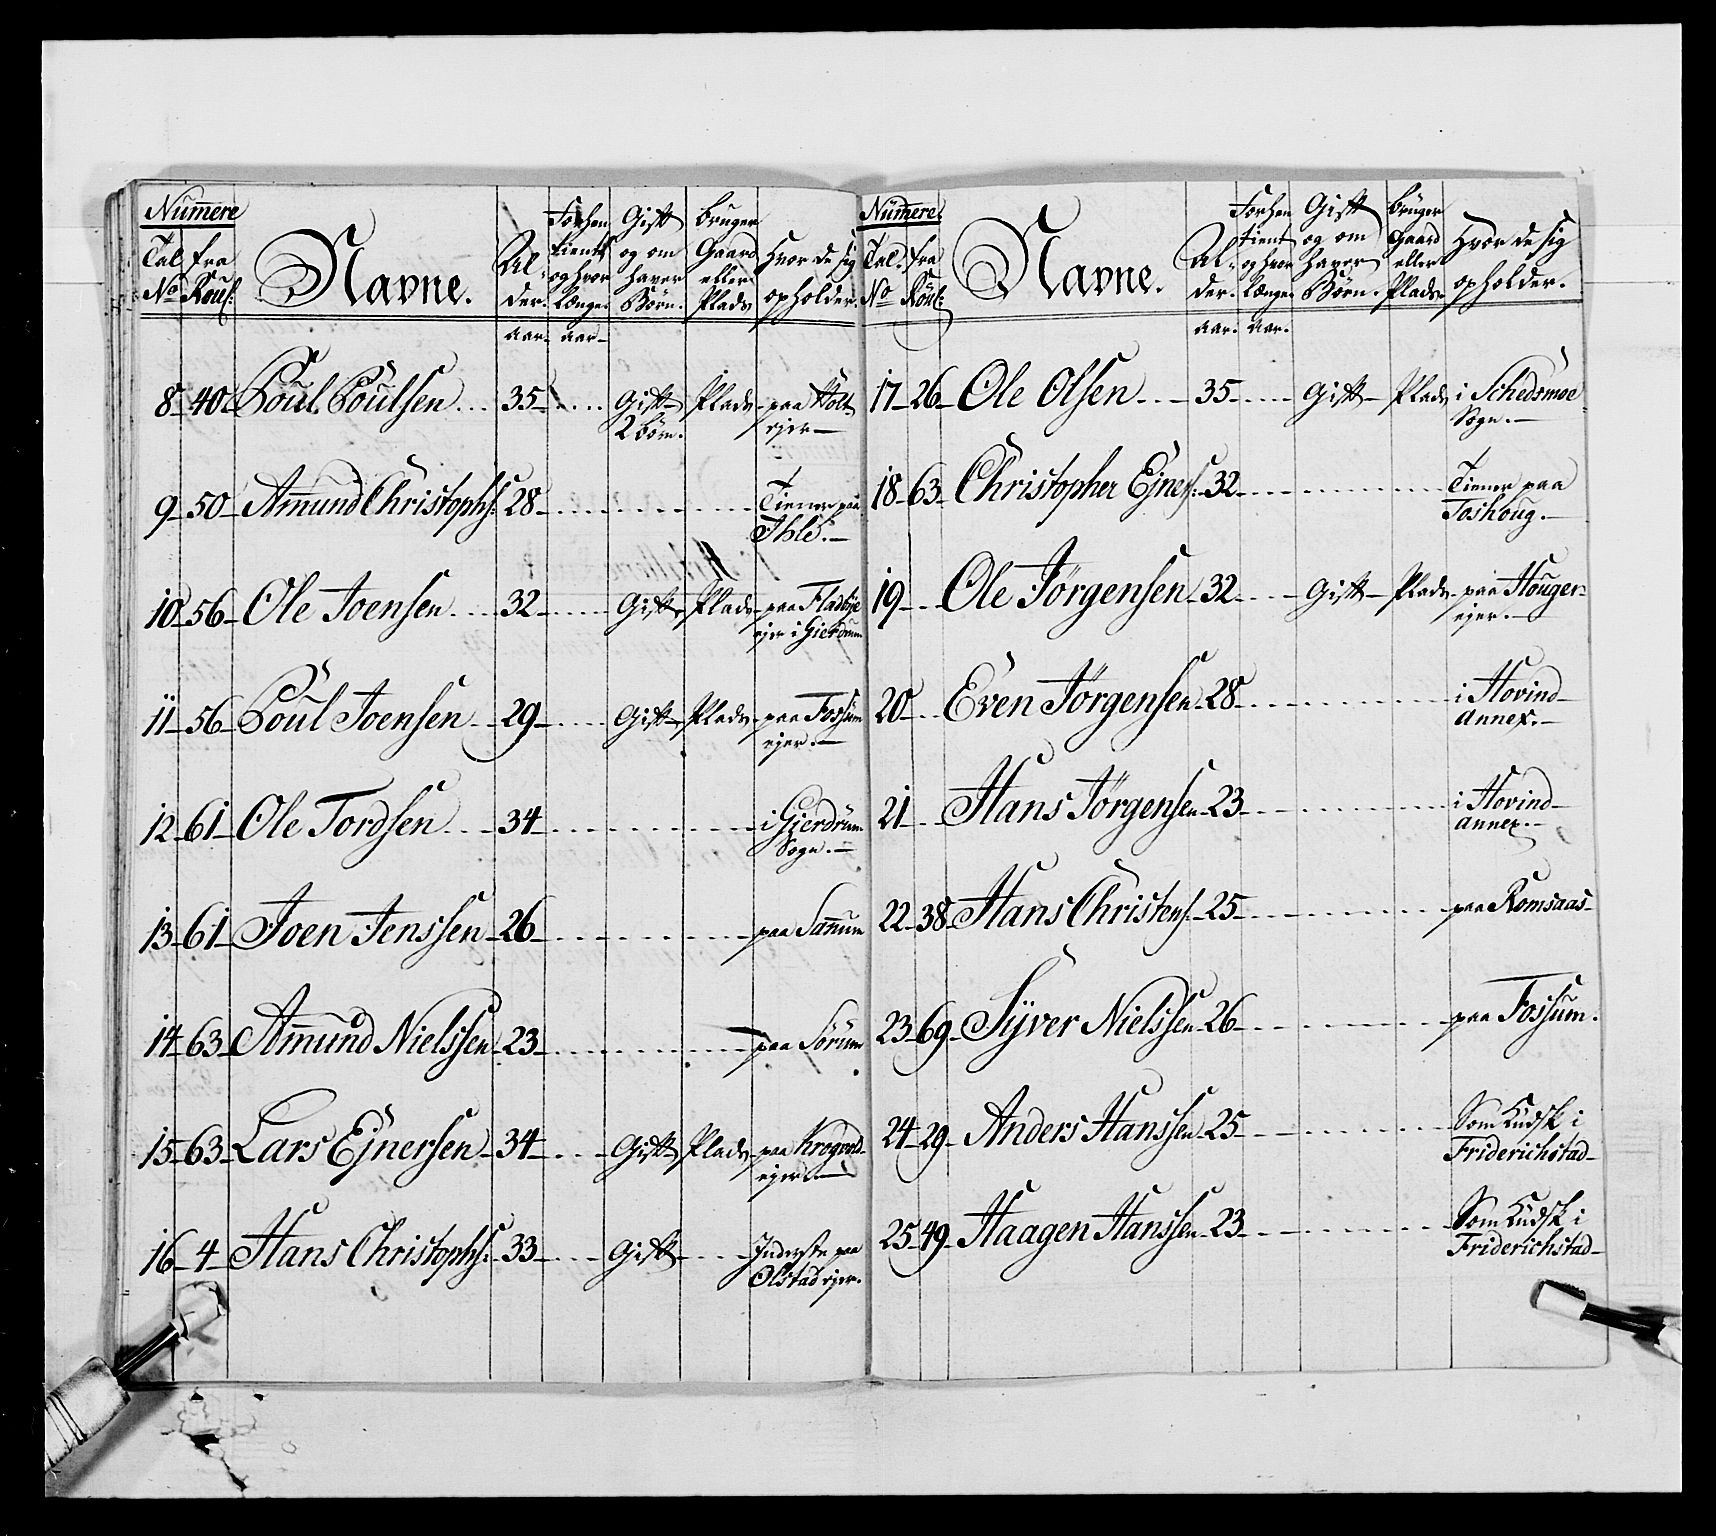 Numere
Tal No
fra Roul:
Navne.
Al-
der.
aar.
Forhen
tient
og hvor
Længe.
aar
Gift
og om
haver
Børn.
bruger
Gaard
eller
Plads
Hvor de sig
opholder.
8 40 Poul Poulsen 35 Gift Plads paa Holt
2 børn. ejer
9 50 Amund Christophs: 28 Tiener paa
Ihle.
10 56 Ole Joensen 32 Gift Plads paa Fladbye
ejer i Gierdrum
11 56 Poul Joensen 29 Gift Plads paa Fossum
ejer.
12 61 Ole Tordsen 34 i Gierdrum
Sogn.
13 61 Joen Jenssen 26 paa Sanum
14 63 Amund Nielssen 23 paa Sørum
15 63 Lars Ejnersen 34 Gift Plads paa
16 4 Hans Christophs: 33 Gift Inderste paa
Olstad ejer.
Numere
Tal. No
fra Roul:
Navne.
Al-
der.
aar.
Forhen
tient
og hvor
Længe.
aar.
Gift
og om
haver
Børn.
bruger
Gaard
eller
Plads
Hvor de sig
opholder.
17 26 Ole Olsen 35 Gift Plads i Schedsmoe
Sogn.
18 63 Christopher Ejners: 32 Tiener paa
Toshoug.
19 Ole Jørgensen 32 Gift Plads paa Houger-
ejer.
20 Even Jørgensen 28 i Hovind
annex.
21 Hans Jørgensen 23 i Hovind
annex.
22 38 Hans Christens: 25 paa Romsaas
23 69 Syver Nielssen 26 paa Fossum.
24 29 Anders Hanssen 25 Som Kudsk i
Friderichstad
25 49 Haagen Hanssen 23 Som Kudsk i
Friderichstad